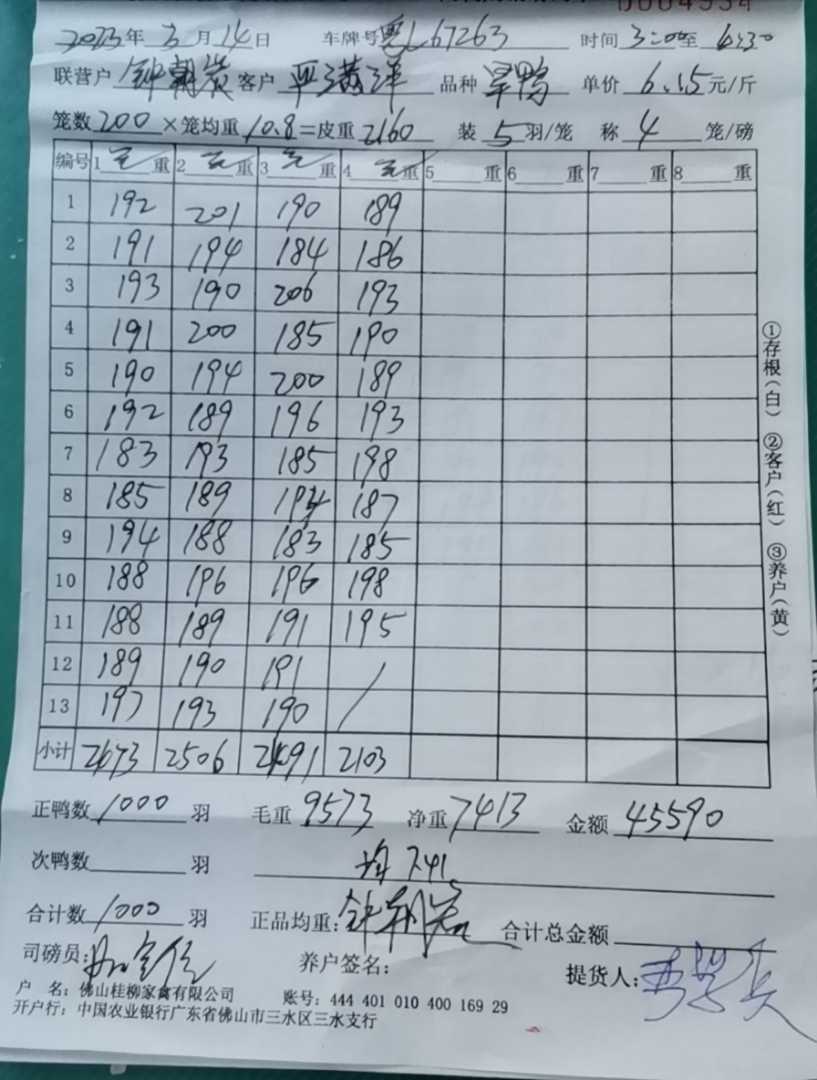 2023年3月14日 车牌号粤L67263 时间3:00至4:30
联营户 钟朝 客户 品种 旱鸭 单价 6.15元/斤
笼数 200 ×笼均重10.8=皮重2160 装 5 羽/笼 称 4 笼/磅
编号 1 毛重 2 毛重 3 毛重 4 毛重 5 重 6 重 7 重 8 重
1 192 201 190 189
2 191 194 184 186
3 193 190 206 193
4 191 200 185 190
5 190 194 200 189
6 192 189 196 193
7 183 193 185 198
8 185 189 194 187
9 194 188 183 185
10 188 196 196 198
11 188 189 191 195
12 189 190 191 /
13 197 193 190 /
小计 2473 2506 2491 2103
正鸭数 1000 羽 毛重 9573 净重 7413 金额 45590
次鸭数 羽 均 7.41
合计数 1000 羽 正品均重: 合计总金额
司磅员: 养户签名: 提货人:
户 名: 佛山桂柳家禽有限公司 账号: 444 401 010 400 169 29
开户行: 中国农业银行广东省佛山市三水区三水支行
①存根(白) ②客户(红) ③养户(黄)